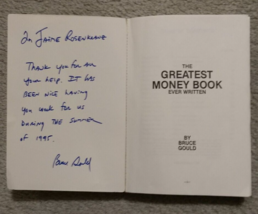 To Jaime Rosenkranz
Thank you for all
your help. It has
been nice having
you work for us
during the summer
of 1995.
Bruce Gould
THE
GREATEST
MONEY BOOK
EVER WRITTEN
BY
BRUCE
GOULD